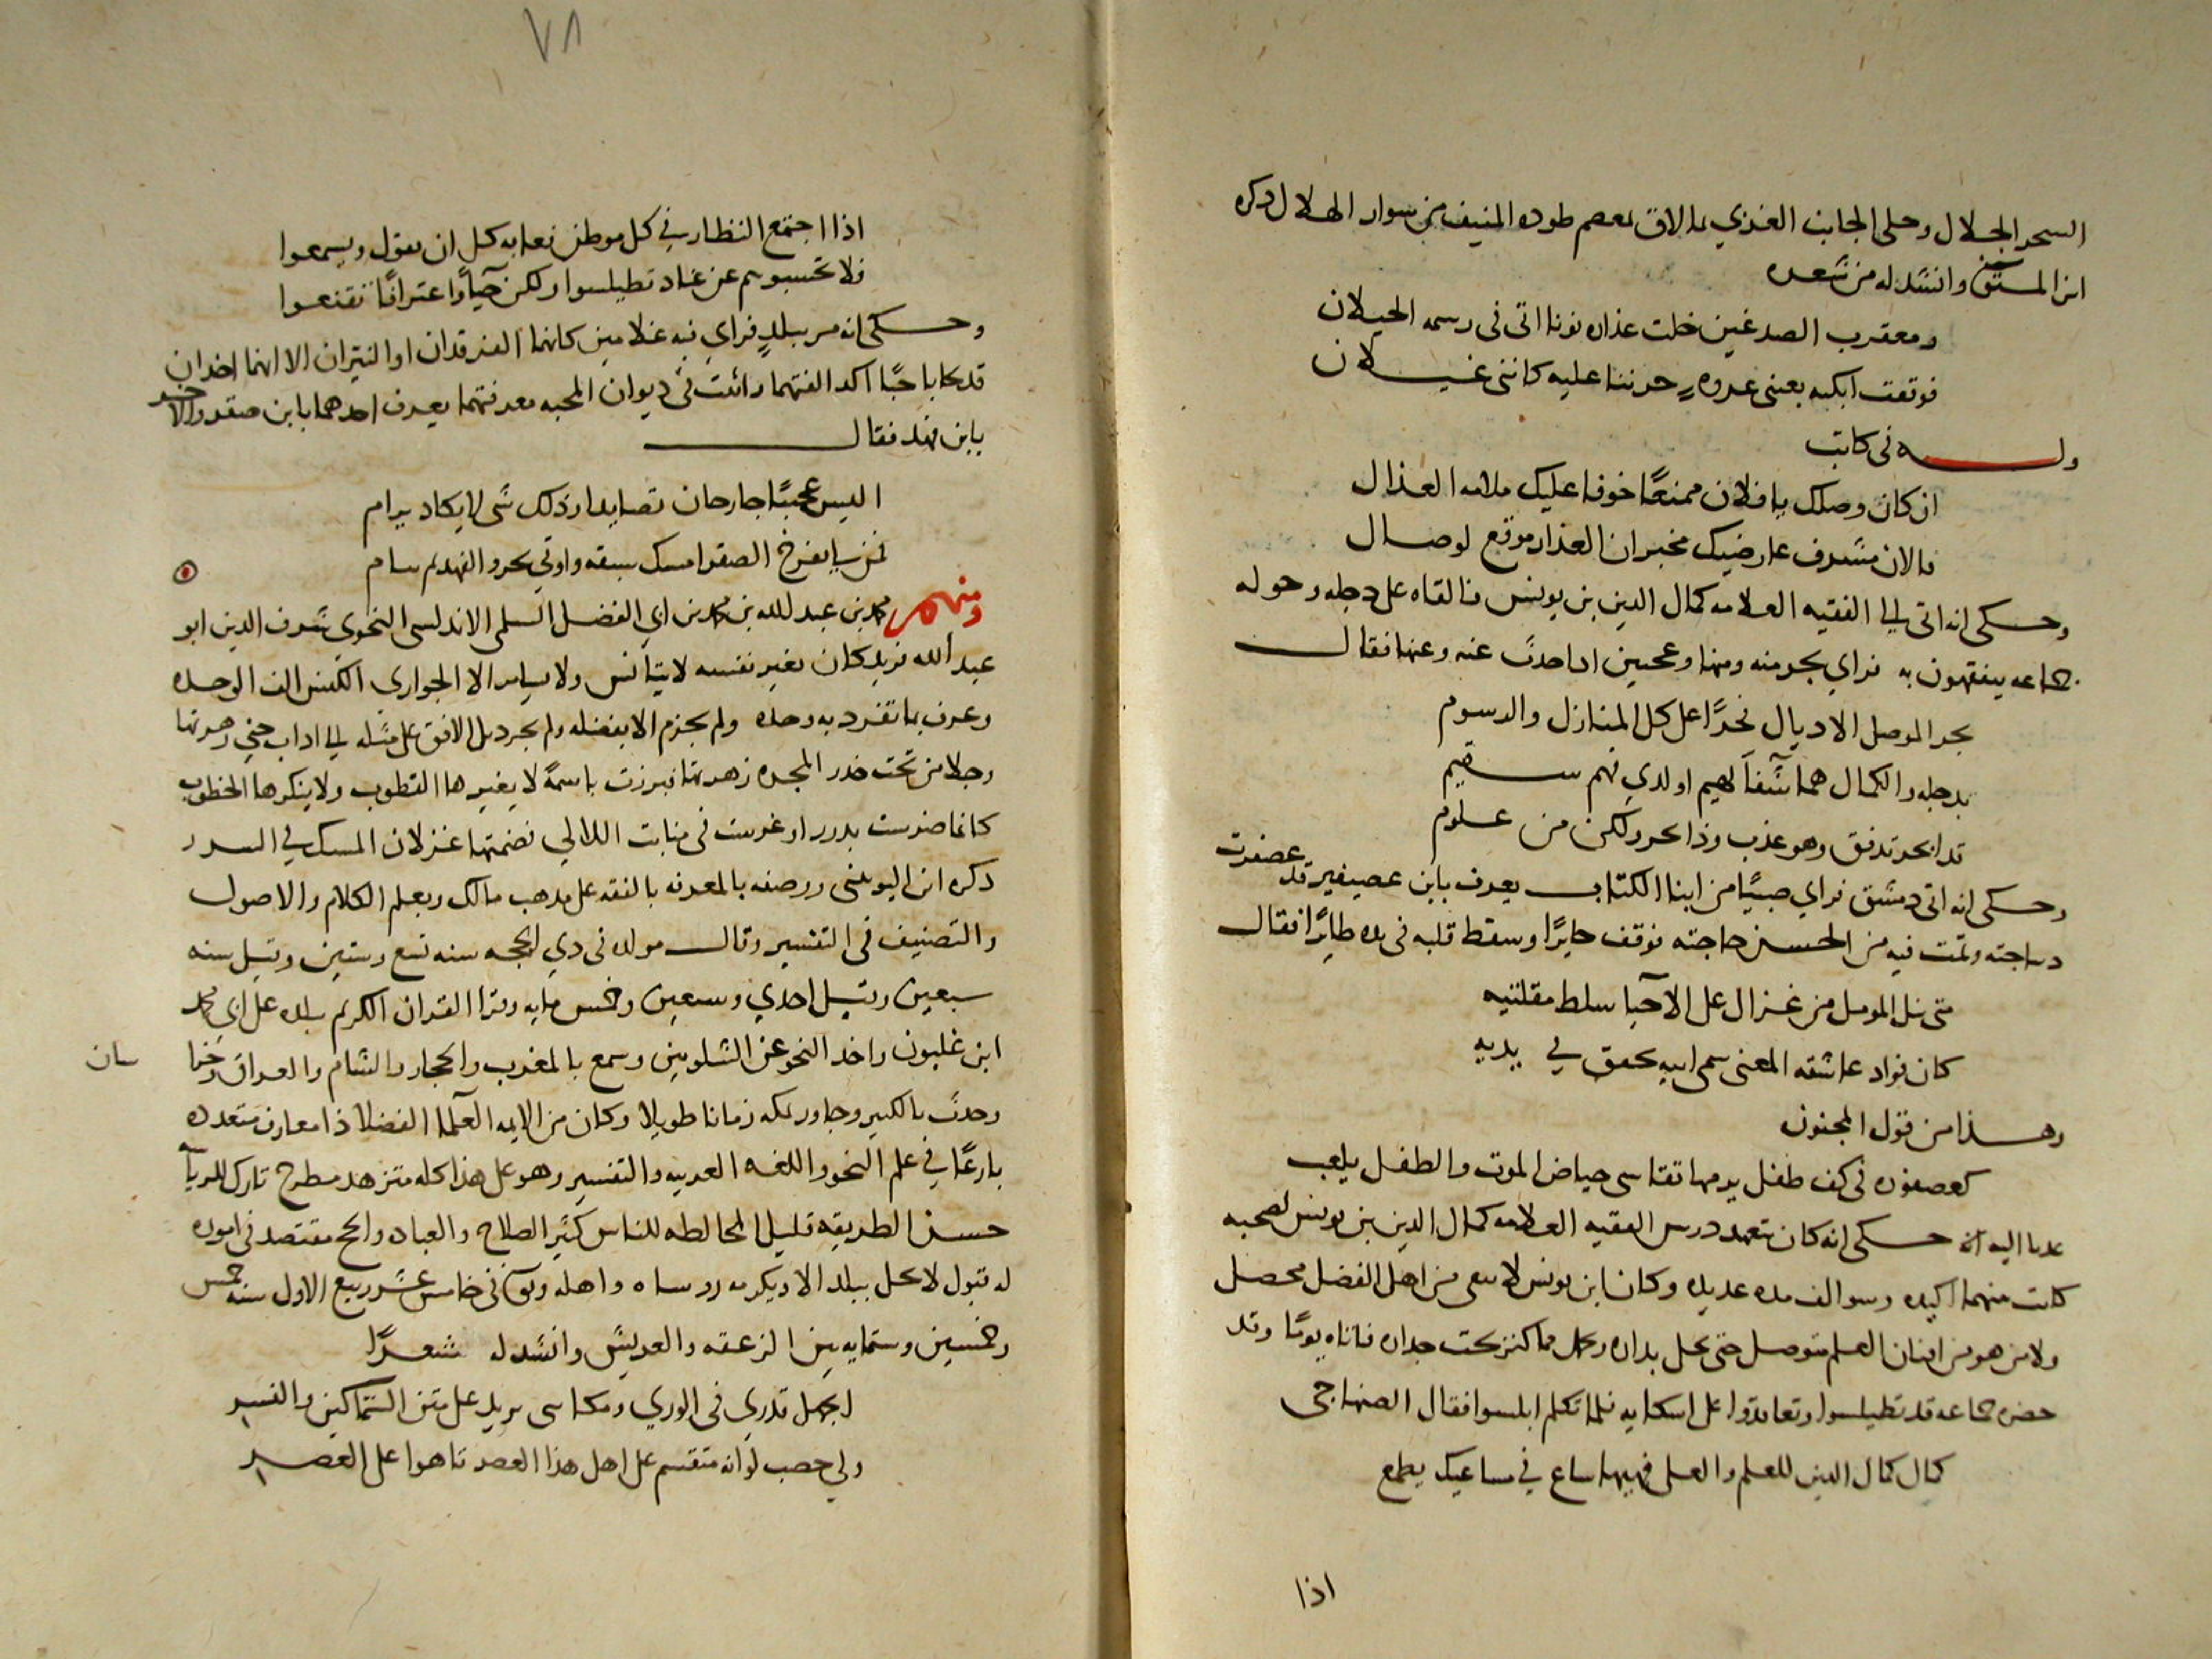 السحر الجلال وحلى الجانب الغربي بما لاق بمعصم طوده المنيف من سوار الهلال ذكره
ابن المستوفى وانشد له من شعره
ومعقرب الصدغين خلت عذاره نونا اتى فى رسمه الحيلان
فوقفت ابكيه بعينى عروه حزننا عليه كاننى غيلان
وله فى كاتب
ان كان وصلك يا فلان ممنعًا خوفا عليك ملامه العذال
فالان مشرف عارضيك مخبر ان العذار موقع لوصال
وحكى انه اتى الى الفقيه العلامه كمال الدين بن يونس فالقاه على دجله وحوله
جماعه يتفقهون به فراي بحر منه ومنها وعجبين اذا حدث عنه وعنها فقال
بجر الموصل الاذيال فخرًا على كل المنازل والرسوم
بدجله والكمال هما شفاً لهيم او لذي فهم سقيم
فذا بحر تدفق وهو عذب وذا بحر ولكن من علوم
وحكى انه اتى دمشق فراي صبيًا من ابنا الكتاب يعرف بابن عصيفير قد عصفرت
دىباجته وتمت فيه من الحسن حاجته فوقف حايرًا وسقط قلبه فى يده طايرًا فقال
متى نيل الموصل من غزال على الآحبا سلط مقلتيه
كان فواد عاشقه المعنى سمى ابيه يخفق في يديه
وهذا من قول المجنون
كعصفوره فى كف طفل يزمها تقاسى حياض الموت والطفل يلعب
عدنا اليه انه حكى انه كان يتعهد درس الفقيه العلامه كمال الدين بن يونس لصحبه
كانت منهما اكيده وسوالف مده عديده وكان ابن يونس لا يبقى من اهل الفضل محصل
ولا من هو من افنان العلم متوصل حتى يحل بداره وكل مما كنز تحت جداره فاتاه يومًا وقد
حضره جماعه قد تطيلسوا وتعاقدوا على اسكاته فلما تكلم ابلسوا فقال الصنهاجى
كمال كمال الدين للعلم والعلى فهيهات ساع في مساعيك يطمع
اذا
٧٨
اذا اجتمع النظار في كل موطن فغايه كل ان يقول ويسمعوا
فلا تحسبوهم عن عناد تطيلسوا ولكن حيآءً واعترافًا تقنعوا
وحكى انه مر ببلدٍ فراي فيه غلامين كانهما الفرقدان او النيران الا انهما اخدان
قد تحابا حبًا اكد الفتهما واثبت فى ديوان المحبه معرفتهما يعرف احدهما بابن صقر والاخر
بابن فهد فقال
اليس عجيبًا جارحان تصايدا وذلك شى لا يكاد يرام
فمن يا بفرخ الصقر امسك سبقه واوتي بحر والفهد لم سام
ومنهم محمد بن عبد الله بن محمد بن ابي الفضل السلمى الاندلسى النحوي شرف الدين ابو
عبد الله نزيل كان بغير نفسه لا يتانس ولا يسامر الا الجواري الكنس الف الوحده
وعرف بما تفرد به وحده ولم يجزم الا بفضله ولم يجر ذيل الافق على مثله الى اداب جنى زهرتها
وجلا من تحت خدر المجره زهرتها فبرزت باسمةً لا يغيرها القطوب ولا ينكرها الخطوب
كانما ضرست بدرر او غرست فى منابت اللالي نضمتها غزلان المسك في السرر
ذكره ابن اليونينى ووصفه بالمعرفه بالفقه على مذهب مالك وبعلم الكلام والاصول
والتصنيف فى التفسير وقال مولده فى ذي الحجه سنه تسع وستين وقيل سنه
سبعين وقيل احدي وسبعين وخمس مايه وقرا القران الكريم ببلده على ابى محمد
ابن غلبون واخذ النحو عن الشلوبين وسمع بالمغرب والحجاز والشام والعراق وخرا
سان
وحدث بالكثير وجاور بمكه زمانا طويلا وكان من الايمه العلما الفضلا ذا معارف متعدده
بارعًا في علم النحو واللغه العربيه والتفسير وهو على هذا كله متزهد مطرح تارك للريآ
حسن الطريقه قليل المخالطه للناس كثير الصلاح والعباده والحج مقتصد فى اموره
له قبول لا يحل ببلد الا ويكرمه روساه واهله وتوفى فى خامس عشر ربيع الاول سنه خمس
وخمسين وستمايه بين الزعقه والعريش وانشد له شعرًا
ايجهل قدري فى الوري ومكانتى تزيد على متن السماكين والنسر
ولي حسب لو انه متقسم على اهل هذا العصر تاهوا على العصر